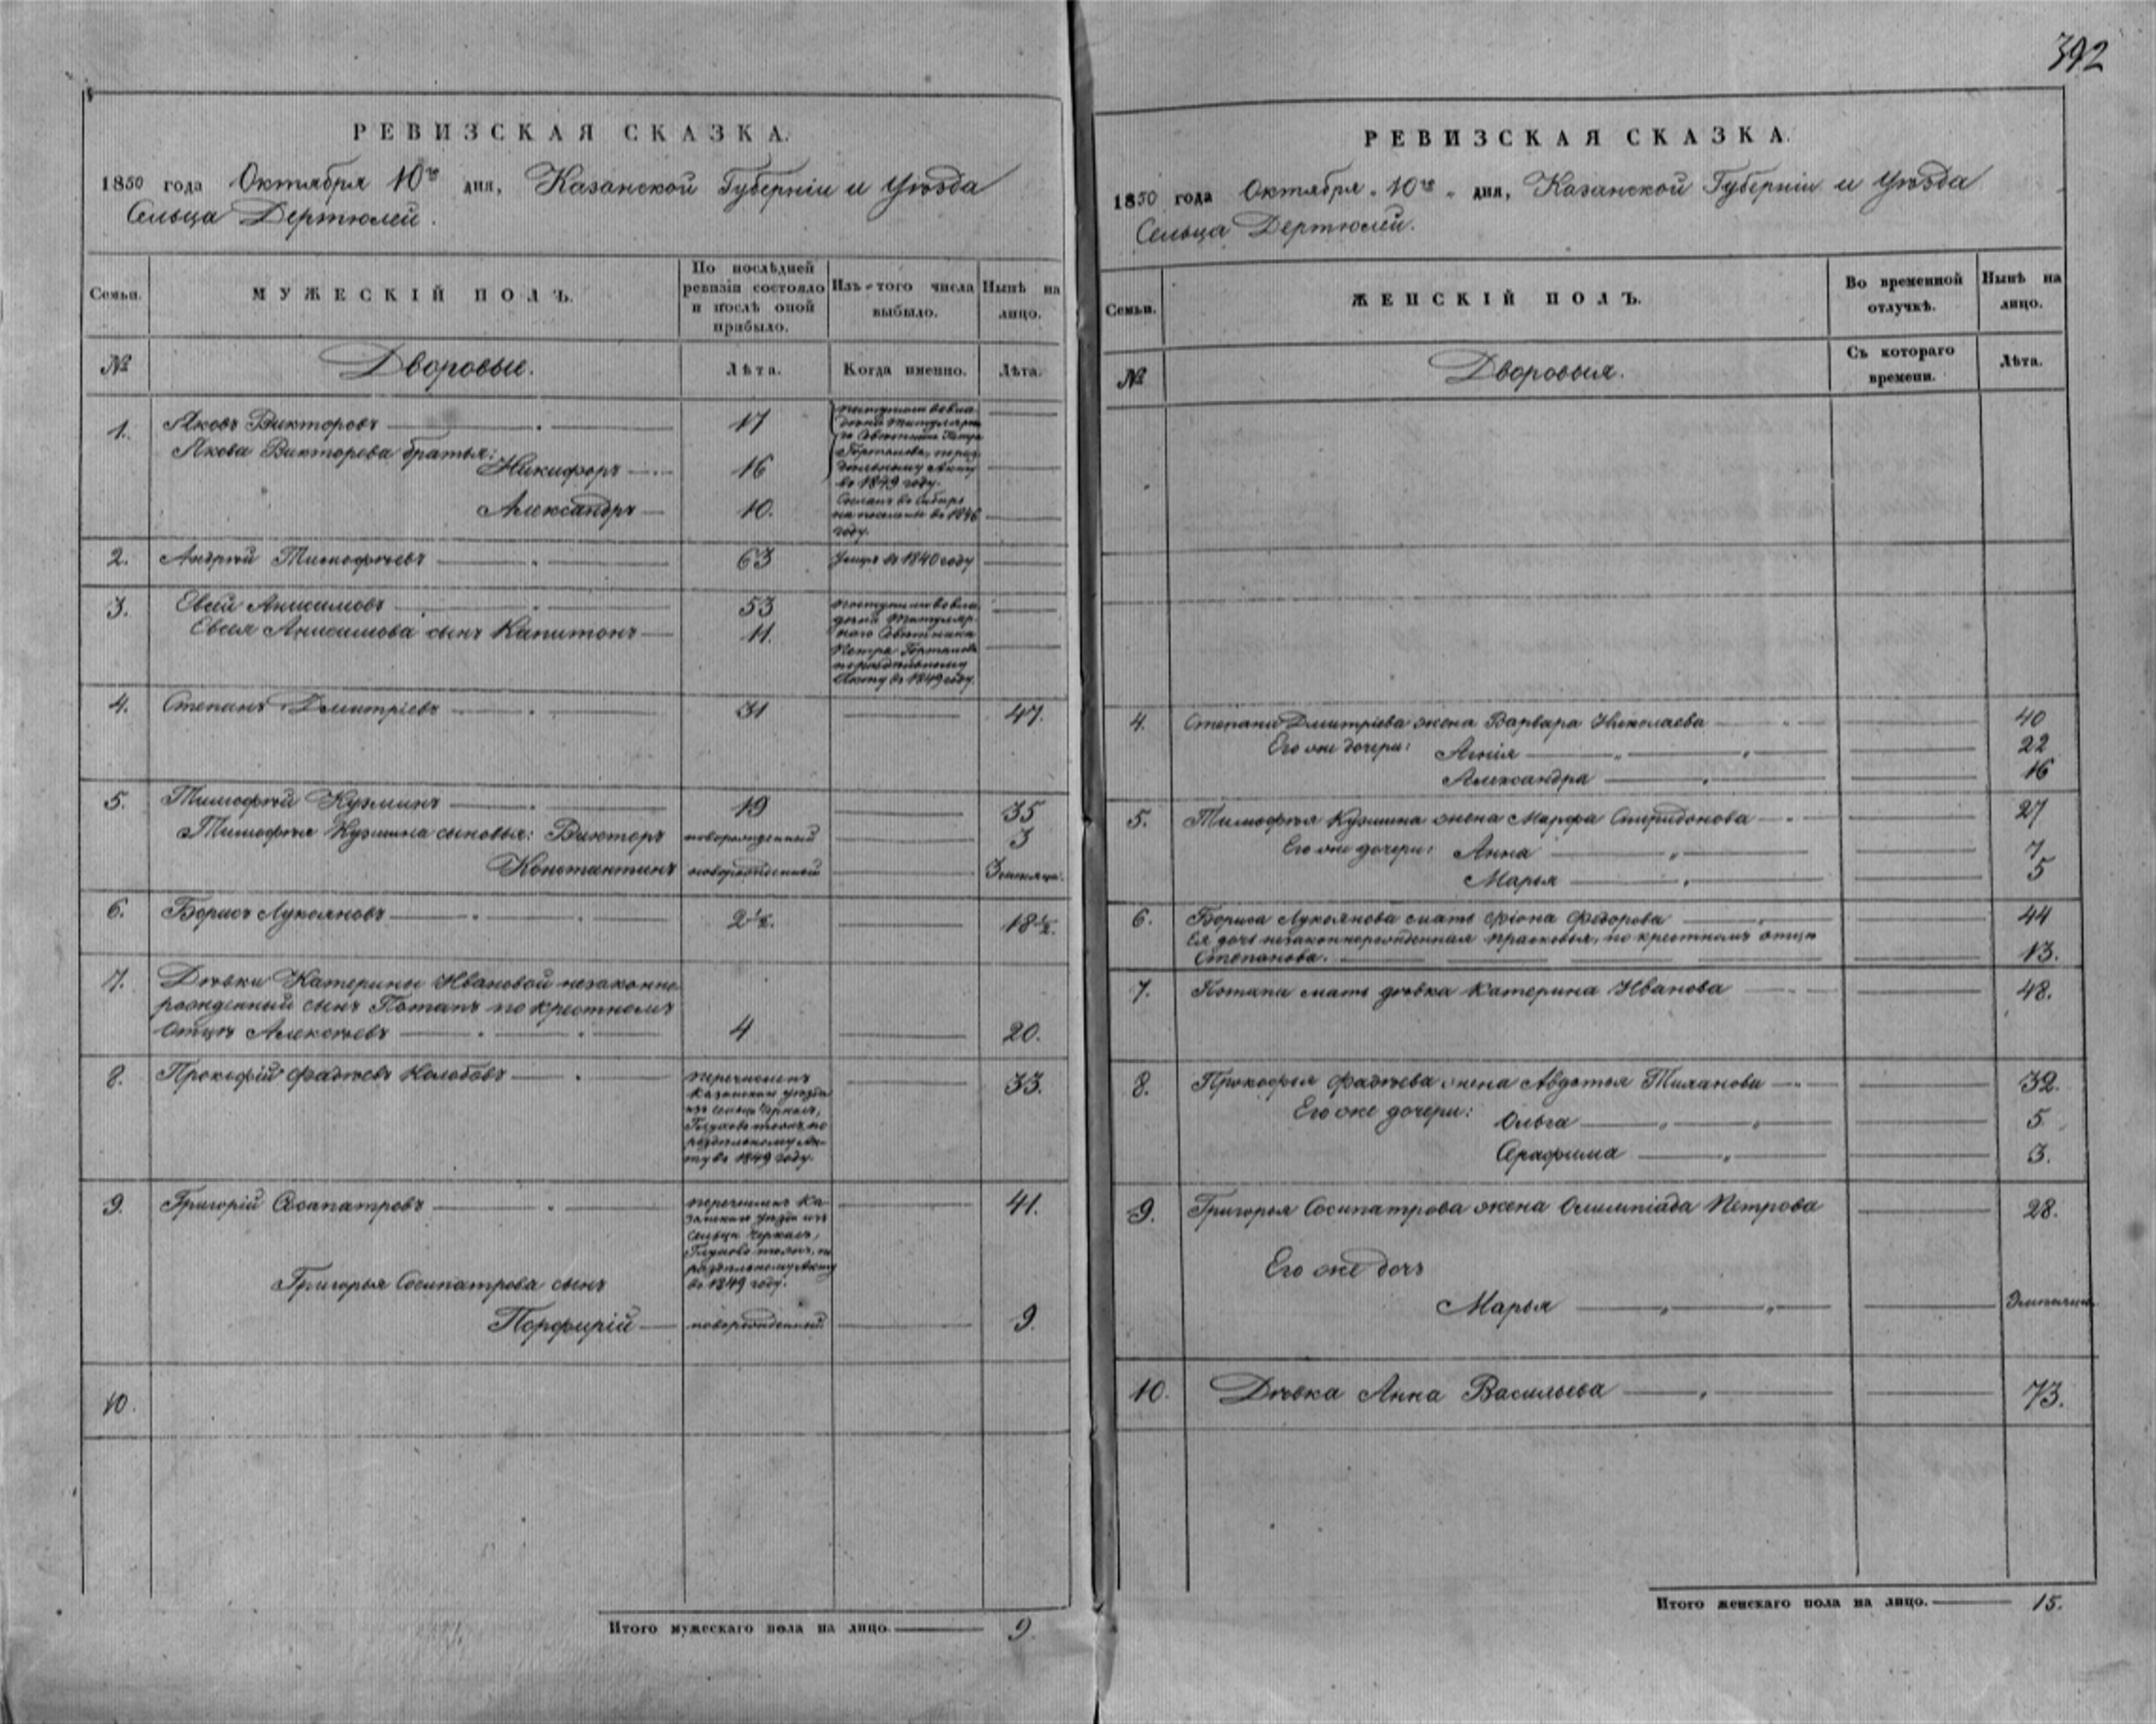 392
РЕВИЗСКАЯ СКАЗКА.
1850 года Октября 10го дня, Казанской Губерніи и Уѣзда
Сельца Дертюлей.
Семьи.
МУЖЕСКІЙ ПОЛЪ.
По послѣдней
ревизіи состояло
и послѣ оной
прибыло.
Изъ того числа
выбыло.
Нынѣ на
лицо.
№
Дворовые.
Лѣта.
Когда именно.
Лѣта.
1. Яковъ Викторовъ 17
Поступили во вла
дѣніе Титулярна
го Совѣтника Петра
по раз
дѣльному Акту
въ 1849 году.
Якова Викторова братья:
Никифоръ 16
Александръ 10.
Сосланъ въ Сибирь
на поселеніе въ 1846
году.
2. Андрей Тимофѣевъ 63 Умеръ въ 1840 году
3. Евсей Анисимовъ 53
Евсея Анисимова сынъ Капитонъ 11.
поступили во вла
дѣніе Титуляр
наго Совѣтника
Петра
по раздѣльному
Акту въ 1849 году.
4. Степанъ Дмитріевъ 31 47.
5. Тимофей Кузминъ 19 35
Тимофея Кузмина сыновья: Викторъ новорожденный 3
Константинъ новорожденный 3 мѣсяца.
6. Борисъ Лукояновъ 2½. 18½.
7. Дѣвки Катерины Ивановой незаконно
рожденный сынъ Потапъ по крестномъ
отцѣ Алексѣевъ 4 20.
8. Прокофій Фадѣевъ Колобовъ 33.
перечисленъ
Казанскаго уѣзда
изъ сельца
по
раздѣльному Ак
ту въ 1849 году.
9. Григорій Сосипатровъ 41.
перечисленъ Ка
занскаго Уѣзда изъ
сельца
по
раздѣльному Акту
въ 1849 году.
Григорья Сосипатрова сынъ
Порфирій новорожденный 9.
10.
Итого мужескаго пола на лицо. 9.
РЕВИЗСКАЯ СКАЗКА.
1850 года Октября 10го дня, Казанской Губерніи и Уѣзда
Сельца Дертюлей.
Семьи.
ЖЕНСКІЙ ПОЛЪ.
Во временной
отлучкѣ.
Нынѣ на
лицо.
№
Дворовыя.
Съ котораго
времени.
Лѣта.
4. Степана Дмитріева жена Варвара Николаева 40
Его же дочери: Агнія 22
Александра 16
5. Тимофея Кузмина жена Марфа Спиридонова 27
Его же дочери: Анна 7
Марья 5
6. Бориса Лукоянова мать Фіона Федорова 44
Ея дочь незаконнорожденная Прасковья, по крестномъ отцѣ
Степанова. 13.
7. Потапа мать дѣвка Катерина Иванова 48.
8. Прокофья Фадѣева жена Авдотья 32.
Его же дочери: Ольга 5
Серафима 3.
9. Григорья Сосипатрова жена Олимпіада Петрова 28.
Его же дочь
Марья
10. Дѣвка Анна Васильева 73.
Итого женскаго пола на лицо. 15.